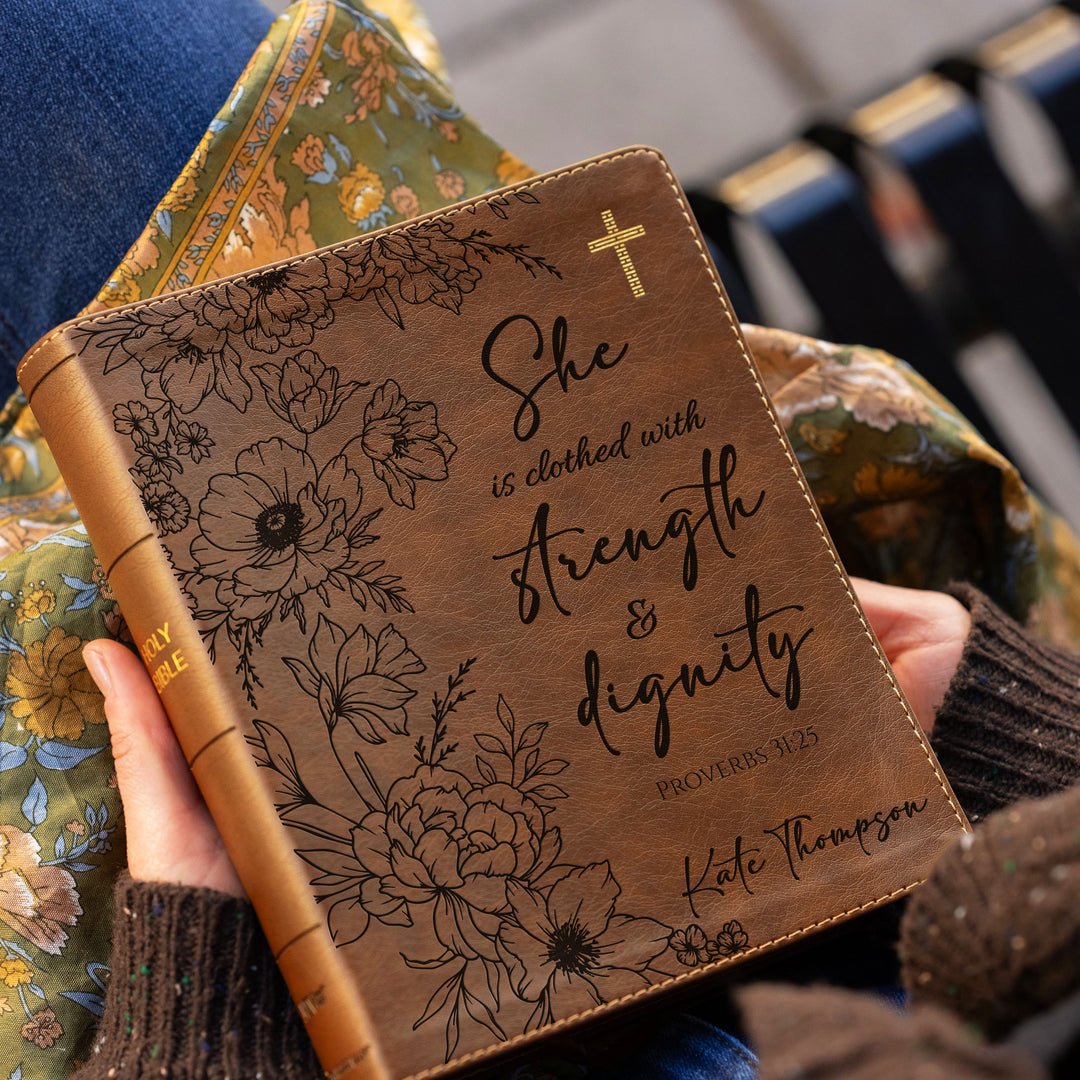 She
is clothed with
strength
&
dignity
PROVERBS 31:25
Kate Thompson
HOLY
BIBLE